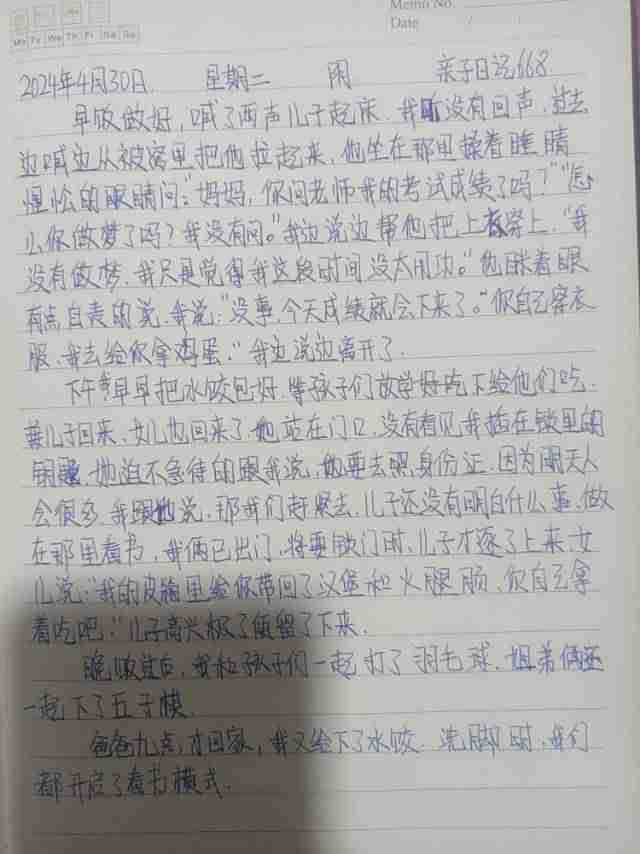 Memo No.
Mo Tu We Th Fr Sa Su
Date / /
2024年4月30日 星期二 阴 亲子日记668
早饭做好,喊了两声儿子起床,我听没有回声,过去
边喊边从被窝里把他拉起来,他坐在那里揉着睡睛
惺忪的眼睛问:“妈妈,你问老师我的考试成绩了吗?”“怎
么你做梦了吗?我没有问。”我边说边帮他把上衣穿上,“我
没有做梦,我只是觉得我这段时间没太用功。”他眯着眼
有点自责的说,我说:“没事,今天成绩就会下来了。”你自己穿衣
服,我去给你拿鸡蛋。”我边说边离开了.
下午早早把水饺包好,等孩子们放学好吃下给他们吃.
儿子回来,女儿也回来了,她站在门口,没有看见我插在锁里的
钥匙,她迫不急待的跟我说,她要去照身份证,因为明天人
会很多,我跟她说,那我们赶紧去,儿子还没有明白什么事,做
在那里看书,我俩已出门,将要锁门时,儿子才逐了上来,女
儿说:“我的皮箱里给你带回了汉堡和火腿肠,你自己拿
着吃吧.”儿子高兴极了做留了下来.
晚饭过后,我和孩子们一起打了羽毛球,姐弟俩还
一起下了五子棋.
爸爸九点才回家,我又给下了水饺.洗脚时,我们
都开启了看书模式.